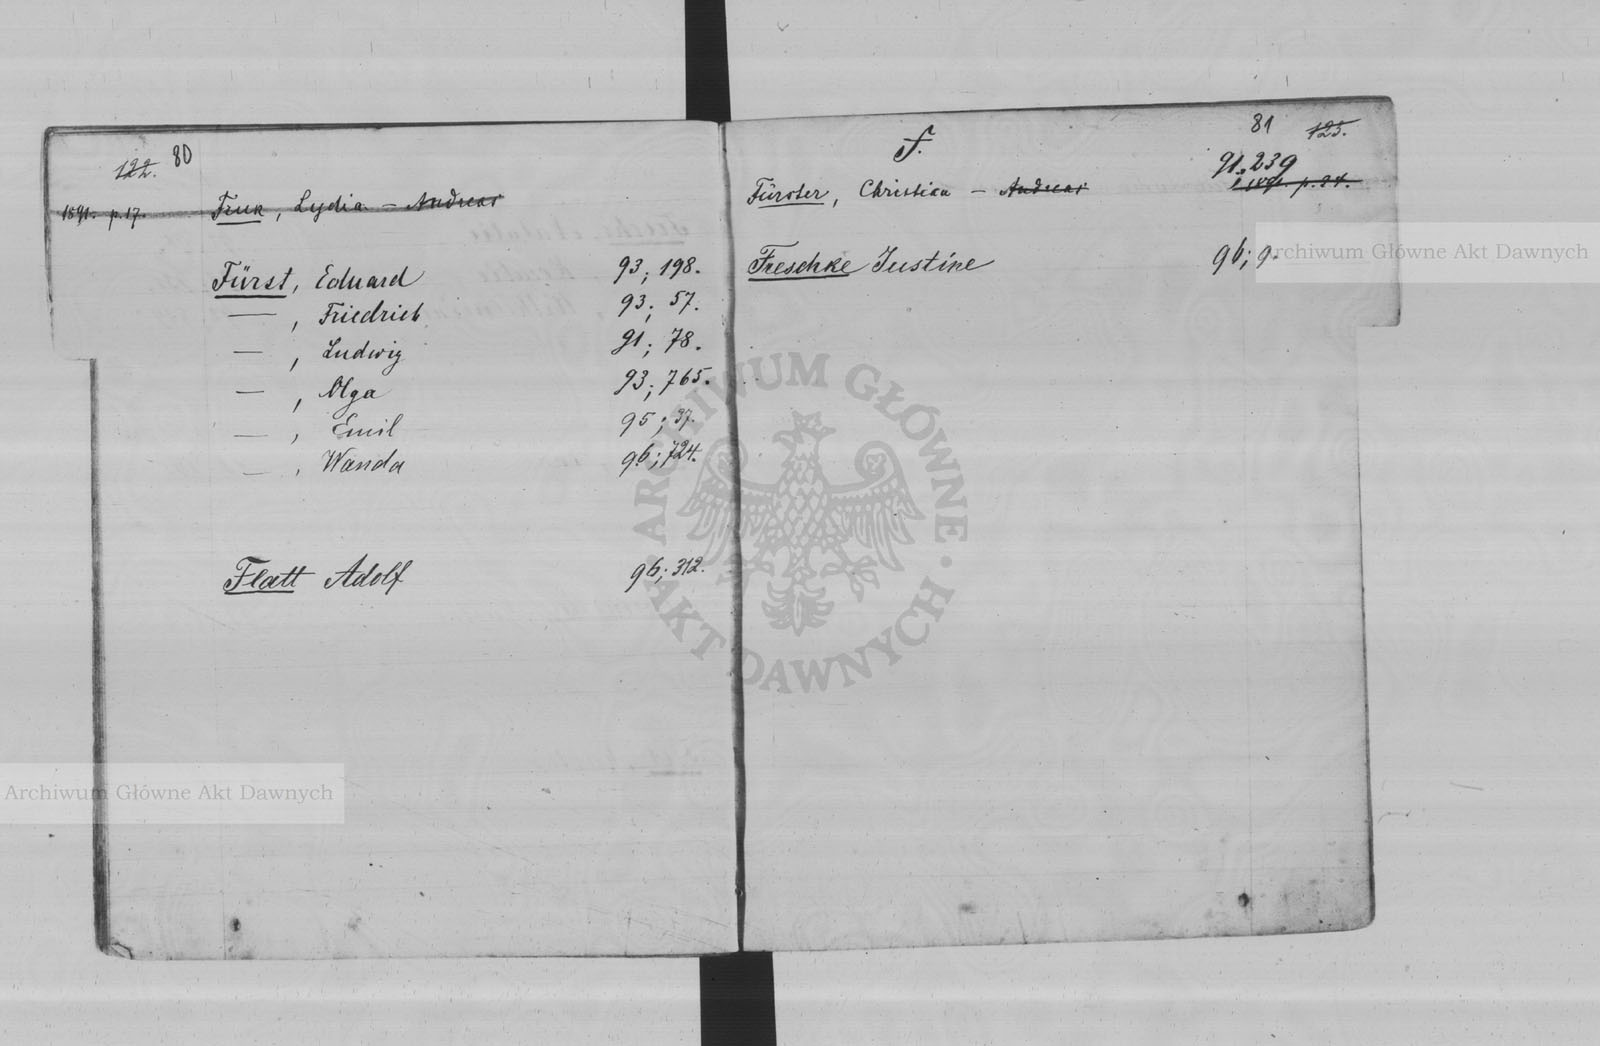 122. 80
1891. p. 17. Funk, Lydia – Andreas
Fürst, Eduard 93; 198.
— , Friedrich 93; 57.
— , Ludwig 91; 78.
— , Olga 93; 765.
— , Emil 95; 37.
— , Wanda 96; 724.
Flatt Adolf 96; 312.
F. 81 123.
91. 239
Fürster, Christina – Andreas 1891. p. 24.
Freschke Justine 96; 9.
ARCHIWUM GŁÓWNE · AKT DAWNYCH ·
Archiwum Główne Akt Dawnych
Archiwum Główne Akt Dawnych